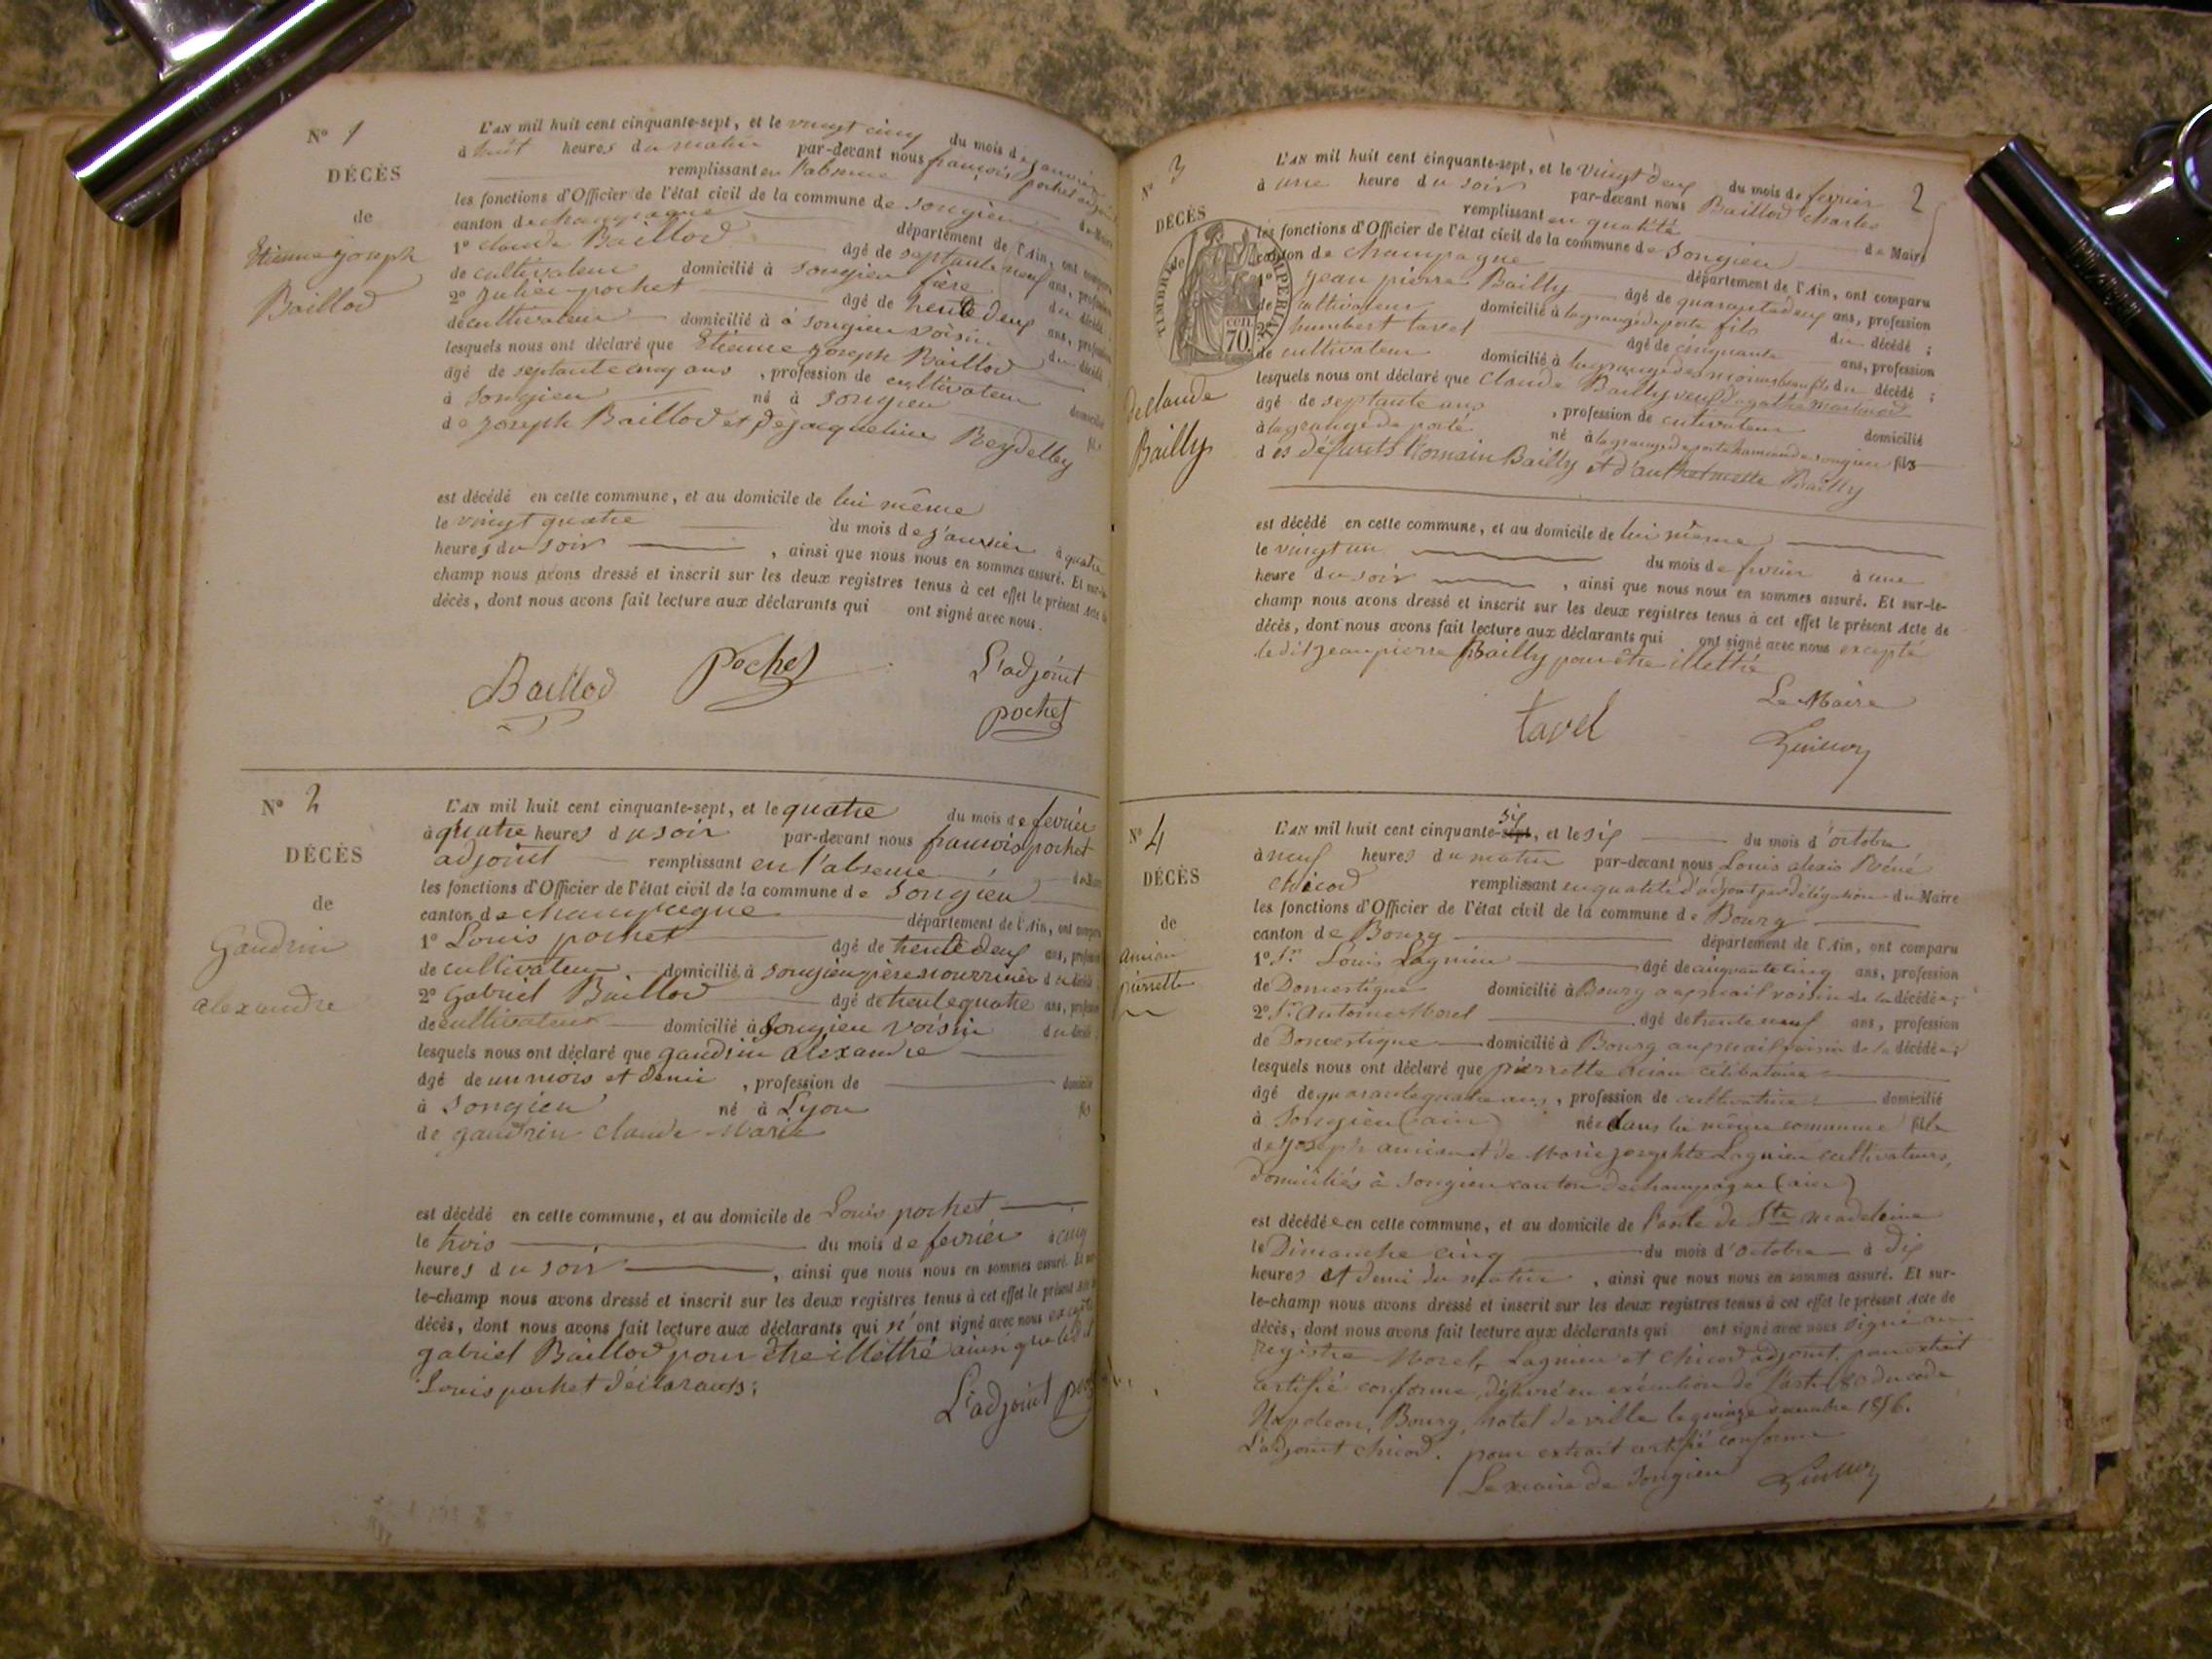 N° 1
DÉCÈS
de
Etienne joseph
Baillod
L'AN mil huit cent cinquante-sept, et le vingt cinq du mois de janvier
à huit heures du matin par-devant nous françois pochet adjoint
remplissant en l'absence du Maire
les fonctions d'Officier de l'état civil de la commune de Songieu
canton de champagne département de l'Ain, ont comparu
1° Claude Baillod âgé de septante neuf ans, profession
de cultivateur domicilié à Songieu frère du décédé
2° Julien pochet âgé de trente deux ans, profession
de cultivateur domicilié à à Songieu voisin du décédé
lesquels nous ont déclaré que Etienne joseph Baillod
âgé de septante cinq ans, profession de cultivateur domicilié
à Songieu né à Songieu fils
de joseph Baillod et de jacqueline Reydelley
est décédé en cette commune, et au domicile de lui même
le vingt quatre du mois de janvier à quatre
heures du soir, ainsi que nous nous en sommes assuré. Et sur-le-
champ nous avons dressé et inscrit sur les deux registres tenus à cet effet le présent Acte de
décès, dont nous avons fait lecture aux déclarants qui ont signé avec nous.
Baillod pochet L'adjoint
pochet
N° 2
DÉCÈS
de
Gaudrin
alexandre
L'AN mil huit cent cinquante-sept, et le quatre du mois de février
à quatre heures du soir par-devant nous francois pochet
adjoint remplissant en l'absence du Maire
les fonctions d'Officier de l'état civil de la commune de Songieu
canton de champagne département de l'Ain, ont comparu
1° Louis pochet âgé de trente deux ans, profession
de cultivateur domicilié à Songieu père nourricier du décédé
2° Gabriel Baillod âgé de trente quatre ans, profession
de cultivateur domicilié à Songieu voisin du décédé
lesquels nous ont déclaré que gaudrin alexandre
âgé de un mois et demi, profession de domicilié
à Songieu né à Lyon fils
de gaudrin claude Marie
est décédé en cette commune, et au domicile de Louis pochet
le trois du mois de février à cinq
heures du soir, ainsi que nous nous en sommes assuré. Et sur-
le-champ nous avons dressé et inscrit sur les deux registres tenus à cet effet le présent Acte de
décès, dont nous avons fait lecture aux déclarants qui n'ont signé avec nous excepté
gabriel Baillod pour être illettré ainsi que ledit
Louis pochet déclarants;
L'adjoint
N° 3
2
DÉCÈS
TIMBRE IMPERIAL
70. cen.
de claude
Bailly
L'AN mil huit cent cinquante-sept, et le vingt deux du mois de fevrier
à une heure du soir par-devant nous Baillod Charles
remplissant en qualité de Maire
les fonctions d'Officier de l'état civil de la commune de Songieu
canton de champagne département de l'Ain, ont comparu
1° jean pierre Bailly âgé de quarante deux ans, profession
de cultivateur domicilié à la grange de porte fils du décédé;
2° humbert tavel âgé de cinquante ans, profession
de cultivateur domicilié à beaufils du décédé;
lesquels nous ont déclaré que Claude Bailly veuf d'agathe
âgé de septante ans, profession de cultivateur domicilié
à la grange de porte né à la grange de porte hameau de songieu fils
des défunts Romain Bailly et d'anthelmette Bailly
est décédé en cette commune, et au domicile de lui même
le vingt un du mois de fevrier à une
heure du soir, ainsi que nous nous en sommes assuré. Et sur-le-
champ nous avons dressé et inscrit sur les deux registres tenus à cet effet le présent Acte de
décès, dont nous avons fait lecture aux déclarants qui ont signé avec nous excepté
le dit jean pierre Bailly pour être illettré
Le Maire
tavel
N° 4
DÉCÈS
de
amian
pierrette
L'AN mil huit cent cinquante-sept six, et le six du mois d'octobre
à neuf heures du matin par-devant nous Louis alexis Réné
chicod remplissant en qualité d'adjoint par délégation du Maire
les fonctions d'Officier de l'état civil de la commune de Bourg
canton de Bourg département de l'Ain, ont comparu
1° Sr Louis Lagnieu âgé de cinquante cinq ans, profession
de Domestique domicilié à Bourg au mail voisin de la décédée;
2° Sr Antoine Morel âgé de trente neuf ans, profession
de Domestique domicilié à Bourg au mail voisin de la décédée;
lesquels nous ont déclaré que pierrette amian célibataire
âgé de quarante quatre ans, profession de cultivatrice domicilié
à Songieu (ain) née dans la même commune fille
de joseph amian et de Marie josephte Lagnieu cultivateurs,
domiciliés à Songieu canton de champagne (ain)
est décédée en cette commune, et au domicile de l'asile de Ste madeleine
le Dimanche cinq du mois d'octobre à dix
heures et demi du matin, ainsi que nous nous en sommes assuré. Et sur-
le-champ nous avons dressé et inscrit sur les deux registres tenus à cet effet le présent Acte de
décès, dont nous avons fait lecture aux déclarants qui ont signé avec nous signé au
registre Morel, Lagnieu et chicod adjoint. pour extrait
certifié conforme, délivré en exécution de l'art. 80 du code
Napoléon, Bourg, hotel de ville le quinze 1856.
L'adjoint chicod. pour extrait certifié conforme
Le maire de Songieu